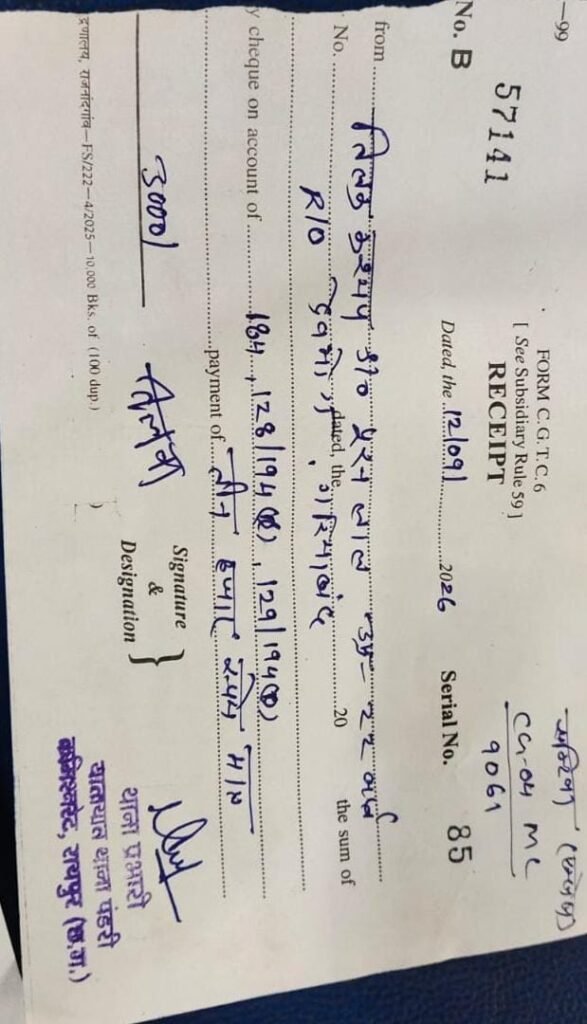 —99
FORM C.G.T.C.6
[ See Subsidiary Rule 59 ]
RECEIPT
CG-04 MC
9061
No. B 57141
Dated, the 12/09/ 2026
Serial No. 85
from तिलक कश्यप S/O लाल उम्र-22 वर्ष
No. R/O dated, the 20 the sum of
y cheque on account of 184, 128/194(), 129/194()
payment of तीन हजार रूपये मात्र
3000/
Signature
&
Designation
थाना प्रभारी
यातायात थाना पंडरी
कमिश्नरेट, रायपुर (छ.ग.)
द्रणालय, राजनांदगांव—FS/222—4/2025—10,000 Bks. of (100 dup.)